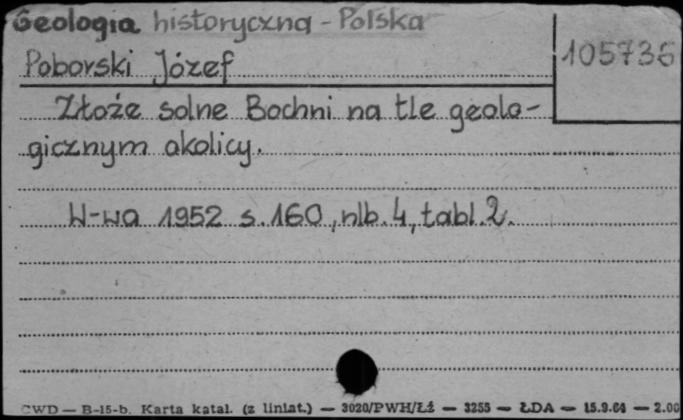 Geologia historyczna - Polska
105736
Poborski Józef
Złoże solne Bochni na tle geolo-
gicznym okolicy.
W-wa 1952 s. 160, nlb. 4, tabl. 2.
CWD — B-15-b. Karta katal. (z liniat.) — 3020/PWH/Łź — 3255 — ŁDA — 15.9.64 — 2.00